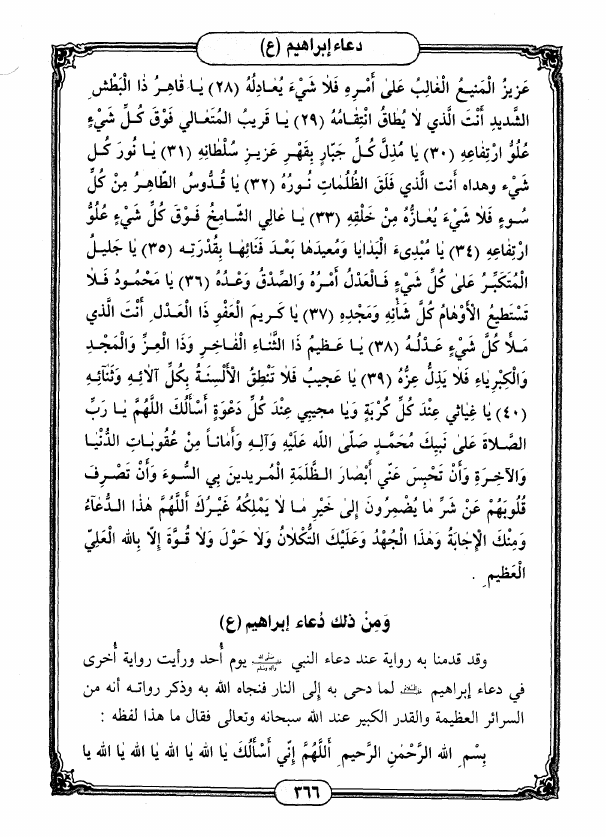 دعاء إبراهيم (ع)
عَزيزُ الْمَنيعُ الْغالِبُ عَلىٰ أَمْرِهِ فَلا شَيْءَ يُعادِلُهُ (٢٨) يٰا قاهِرُ ذَا الْبَطْشِ
الشَّديدِ أَنْتَ الَّذي لا يُطاقُ انْتِقامُهُ (٢٩) يٰا قَريبُ الْمُتَعالي فَوْقَ كُلِّ شَيْءٍ
عُلُوُّ ارْتِفاعِهِ (٣٠) يٰا مُذِلَّ كُلِّ جَبّارٍ بِقَهْرِ عَزيزِ سُلْطانِهِ (٣١) يٰا نُورَ كُلِّ
شَيْءٍ وهداه أنت الَّذي فَلَقَ الظُّلُماتِ نُورُهُ (٣٢) يٰا قُدُّوسُ الطّاهِرُ مِنْ كُلِّ
سُوءٍ فَلا شَيْءَ يُعازُّهُ مِنْ خَلْقِهِ (٣٣) يٰا عالي الشّامِخُ فَوْقَ كُلِّ شَيْءٍ عُلُوُّ
ارْتِفاعِهِ (٣٤) يٰا مُبْدِىءَ الْبَدايٰا وَمُعيدَهٰا بَعْدَ فَنائِهٰا بِقُدْرَتِهِ (٣٥) يٰا جَليلُ
الْمُتَكَبِّرُ عَلىٰ كُلِّ شَيْءٍ فَالْعَدْلُ أَمْرُهُ وَالصِّدْقُ وَعْدُهُ (٣٦) يٰا مَحْمُودُ فَلا
تَسْتَطيعُ الْأَوْهامُ كُلَّ شَأْنِهِ وَمَجْدِهِ (٣٧) يٰا كَريمَ الْعَفْوِ ذَا الْعَدْلِ أَنْتَ الَّذي
مَلَأَ كُلَّ شَيْءٍ عَدْلُهُ (٣٨) يٰا عَظيمُ ذَا الثَّناءِ الْفاخِرِ وَذَا الْعِزِّ وَالْمَجْدِ
وَالْكِبْرِياءِ فَلا يَذِلُّ عِزُّهُ (٣٩) يٰا عَجيبُ فَلا تَنْطِقُ الْأَلْسِنَةُ بِكُلِّ آلائِهِ وَثَنٰائِهِ
(٤٠) يٰا غِياثي عِنْدَ كُلِّ كُرْبَةٍ وَيٰا مجيبي عِنْدَ كُلِّ دَعْوَةٍ أَسْأَلُكَ اللَّهُمَّ يٰا رَبِّ
الصَّلاةَ عَلىٰ نَبِيكَ مُحَمَّدٍ صَلَّى الله عَلَيْهِ وَآلِهِ وَأَماناً مِنْ عُقُوباتِ الدُّنْيٰا
وَالآخِرَةِ وَأَنْ تَحْبِسَ عَنّي أَبْصارَ الظَّلَمَةِ الْمُريدينَ بِي السُّوءَ وَأَنْ تَصْرِفَ
قُلُوبَهُمْ عَنْ شَرِّ مٰا يُضْمِرُونَ إِلىٰ خَيْرِ مٰا لا يَمْلِكُهُ غَيْرُكَ أَللَّهُمَّ هٰذَا الدُّعٰاءُ
وَمِنْكَ الْإِجابَةُ وَهٰذَا الْجُهْدُ وَعَلَيْكَ التُّكْلانُ وَلا حَوْلَ وَلا قُوَّةَ إِلّا بِالله الْعَلِيِّ
الْعَظيمِ .
وَمِنْ ذلك دُعاء إبراهيم (ع)
وقد قدمنا به رواية عند دعاء النبي ﷺ يوم أُحد ورأيت رواية أُخرى
في دعاء إبراهيم لما دحى به إلى النار فنجاه الله به وذكر رواته أنه من
السرائر العظيمة والقدر الكبير عند الله سبحانه وتعالى فقال ما هذا لفظه :
بِسْمِ الله الرَّحْمٰنِ الرَّحيمِ أَللَّهُمَّ إِنّي أَسْأَلُكَ يٰا الله يٰا الله يٰا الله يٰا الله يٰا
٣٦٦